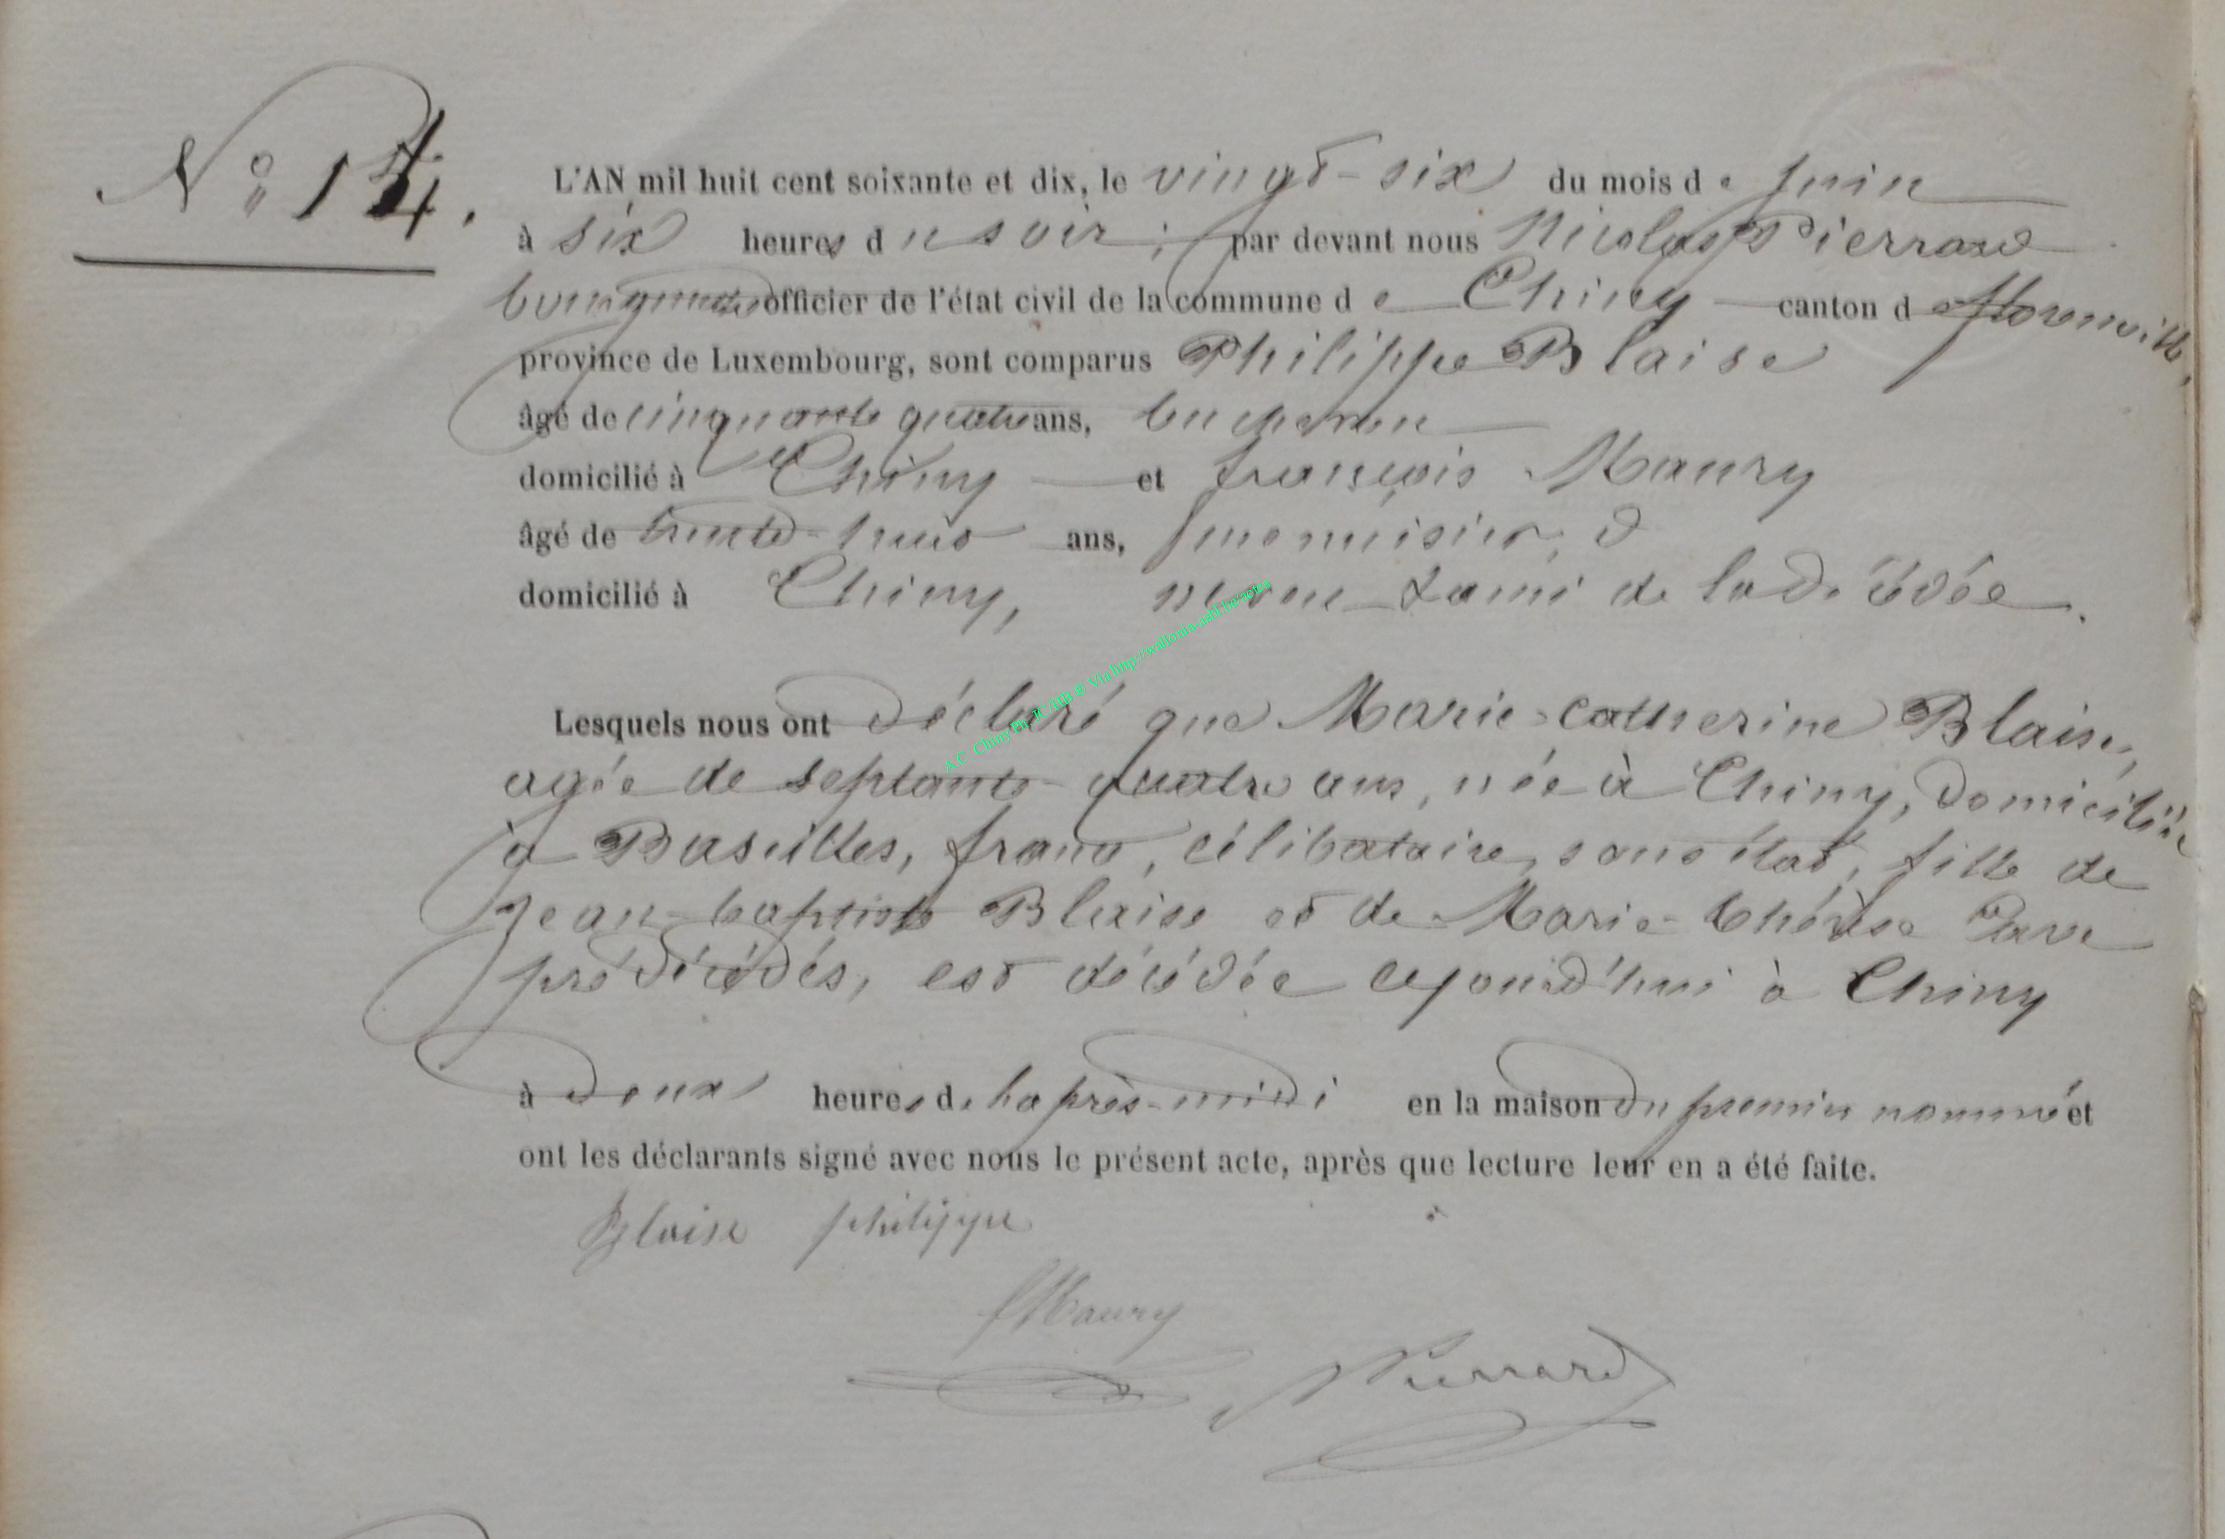 N° 14.
L'AN mil huit cent soixante et dix, le vingt-six du mois de juin
à six heures du soir ; par devant nous Nicolas Pierrard
bourgmestre officier de l'état civil de la commune de Chiny canton de Florenville,
province de Luxembourg, sont comparus Philippe Blaise
âgé de cinquante quatre ans, bucheron
domicilié à Chiny et françois Maury
âgé de trente-trois ans, menuisier, d
domicilié à Chiny, neveu & ami de la décédée.
Lesquels nous ont déclaré que Marie-catherine Blaise,
agée de septante-quatre ans, née à Chiny, domiciliée
à Baseilles, france, célibataire, sans état, fille de
Jean-baptiste Blaise et de Marie-thérèse
prédécédés, est décédée cejourd'hui à Chiny
à deux heures de l'après-midi en la maison du premier nommé et
ont les déclarants signé avec nous le présent acte, après que lecture leur en a été faite.
Blaise philippe
fMaury
NPierrard